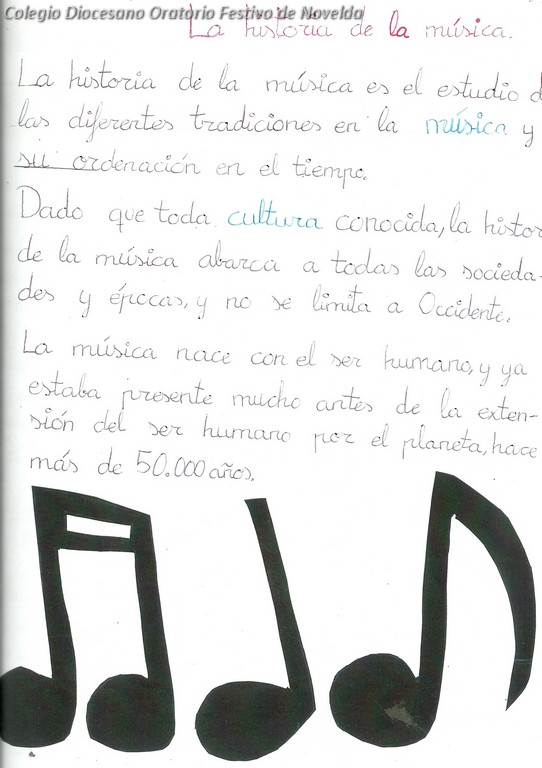 Colegio Diocesano Oratorio Festivo de Novelda
La historia de la música.
La historia de la música es el estudio d
las diferentes tradiciones en la música y
su ordenación en el tiempo.
Dado que toda cultura conocida, la histor
de la música abarca a todas las socieda-
des y épocas, y no se limita a Occidente.
La música nace con el ser humano, y ya
estaba presente mucho antes de la exten-
sión del ser humano por el planeta, hace
más de 50.000 años.